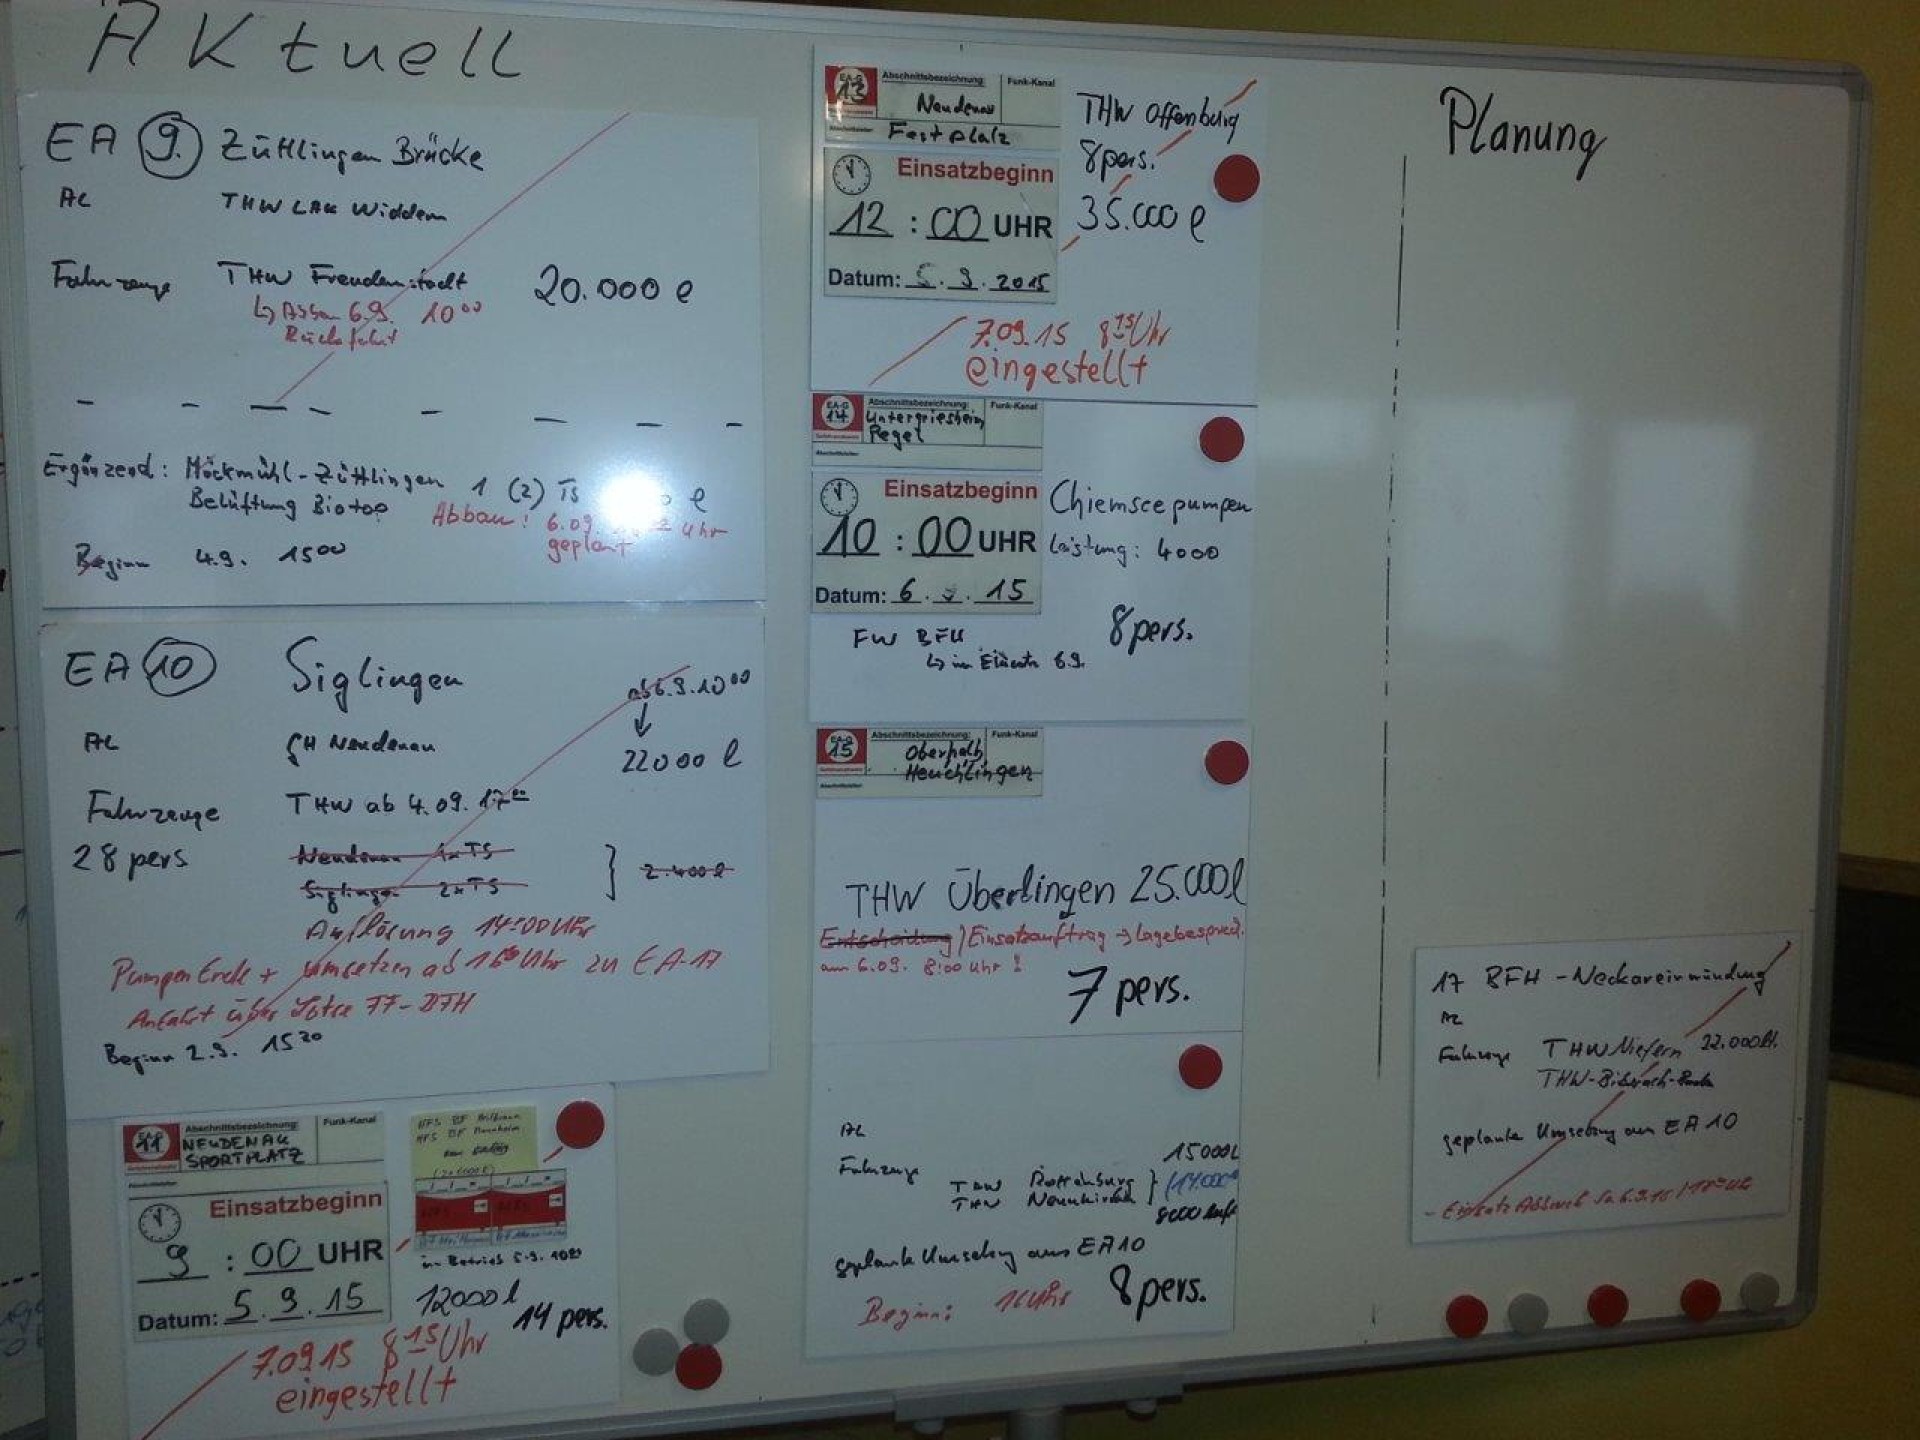 Aktuell
EA 9. Züttlingen Brücke
AL THW LAK Widdern
Fahrzeuge THW Freudenstadt 20.000 l
↳ Abbau 6.9. 10 00
Rückfahrt
Ergänzend: Möckmühl-Züttlingen 1 (2) TS l
Belüftung Biotop
Abbau: 6.09. Uhr
geplant
Beginn 4.9. 15 00
EA 10 Siglingen
ab 6.9. 10 00
↓
AL GH Neudenau
22000 l
Fahrzeuge THW ab 4.09. 17 00
28 pers Neudenau 1xTS
Siglingen 2xTS } 2.400 l
Auflösung 14:00 Uhr
Pumpen Ende + umsetzen ab Uhr zu EA-17
Anfahrt über Lotse FF-BFH
Beginn 2.9. 15 30
11
Abschnittsbezeichnung: Funk-Kanal
NEUDENAU
SPORTPLATZ
Einsatzbeginn
9 : 00 UHR
Datum: 5.9.15
HFS BF Heilbronn
HFS BF Mannheim
in Betrieb 5.9.
12000 l
14 pers.
7.09.15 8 15 Uhr
eingestellt
EA-G
13
Abschnittsbezeichnung: Funk-Kanal
Neudenau
Festplatz
Einsatzbeginn
12 : 00 UHR
Datum: 5.9.2015
THW Offenburg
8 pers.
35.000 l
7.09.15 8 15 Uhr
eingestellt
EA-G
14
Abschnittsbezeichnung: Funk-Kanal
Untergriesheim
Pegel
Abschnittsleiter:
Einsatzbeginn
10 : 00 UHR
Datum: 6.9.15
Chiemsee pumpen
Leistung: 4000
FW BFH
↳ im Einsatz 6.9.
8 pers.
EA-G
15
Abschnittsbezeichnung: Funk-Kanal
Oberhalb
Heuchlingen
Abschnittsleiter:
THW Überlingen 25.000 l
Entscheidung / Einsatzauftrag → Lagebesprech.
am 6.09. 8:00 Uhr !
7 pers.
AL
15000 L
Fahrzeuge THW Rottenburg
THW Neunkirchen }
8000
geplante Umsetzung aus EA 10
Beginn: 16 Uhr
8 pers.
Planung
17 BFH - Neckareinmündung
AL
Fahrzeuge THW Niefern 22.000 lt.
THW-Biberach-
geplante Umsetzung aus EA 10
- Einsatz Abbruch 6.9.15